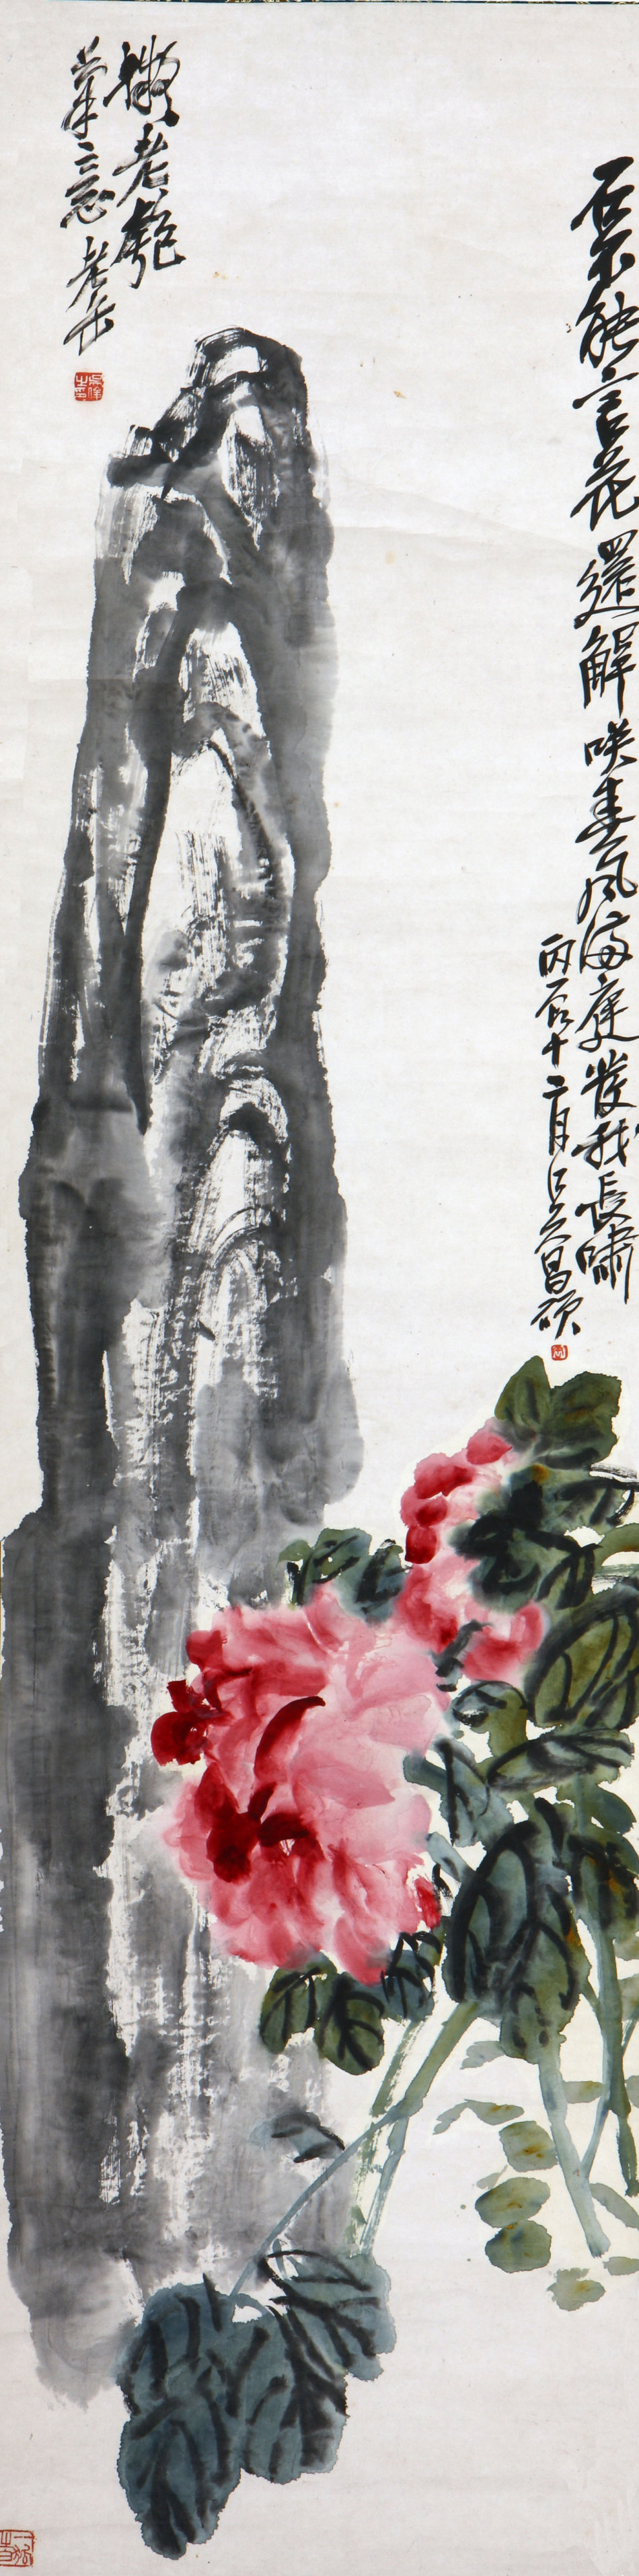 石不能言花還解咲春風滿庭發我長嘯
丙辰十二月吳昌碩
擬老匏
筆意老缶